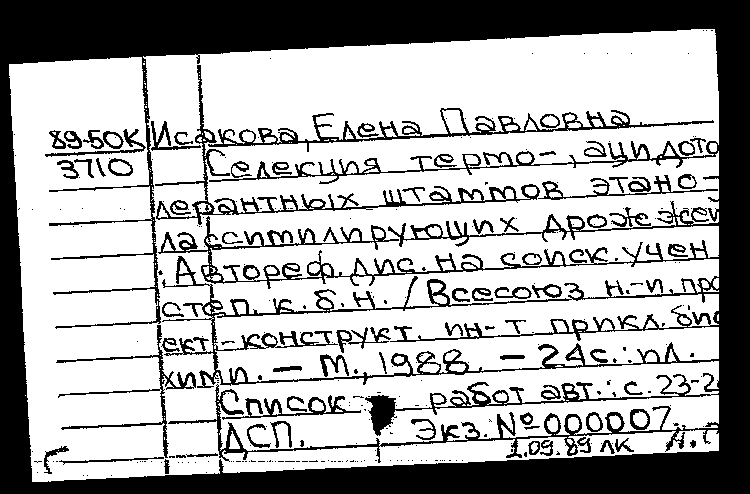 89-50К Исакова, Елена Павловна.
3710 Селекция термо-, ацидото
лерантных штаммов этано-
лассимилирующих дрожжей
: Автореф. дис. на соиск. учен
степ. к. б. н. / Всесоюз н.-и. про
ект.-конструкт. ин-т прикл. био
хими. — М., 1988. — 24с. : ил.
Список работ авт.: с. 23-2
ДСП. Экз. № 000007.
1.09.89 ЛК